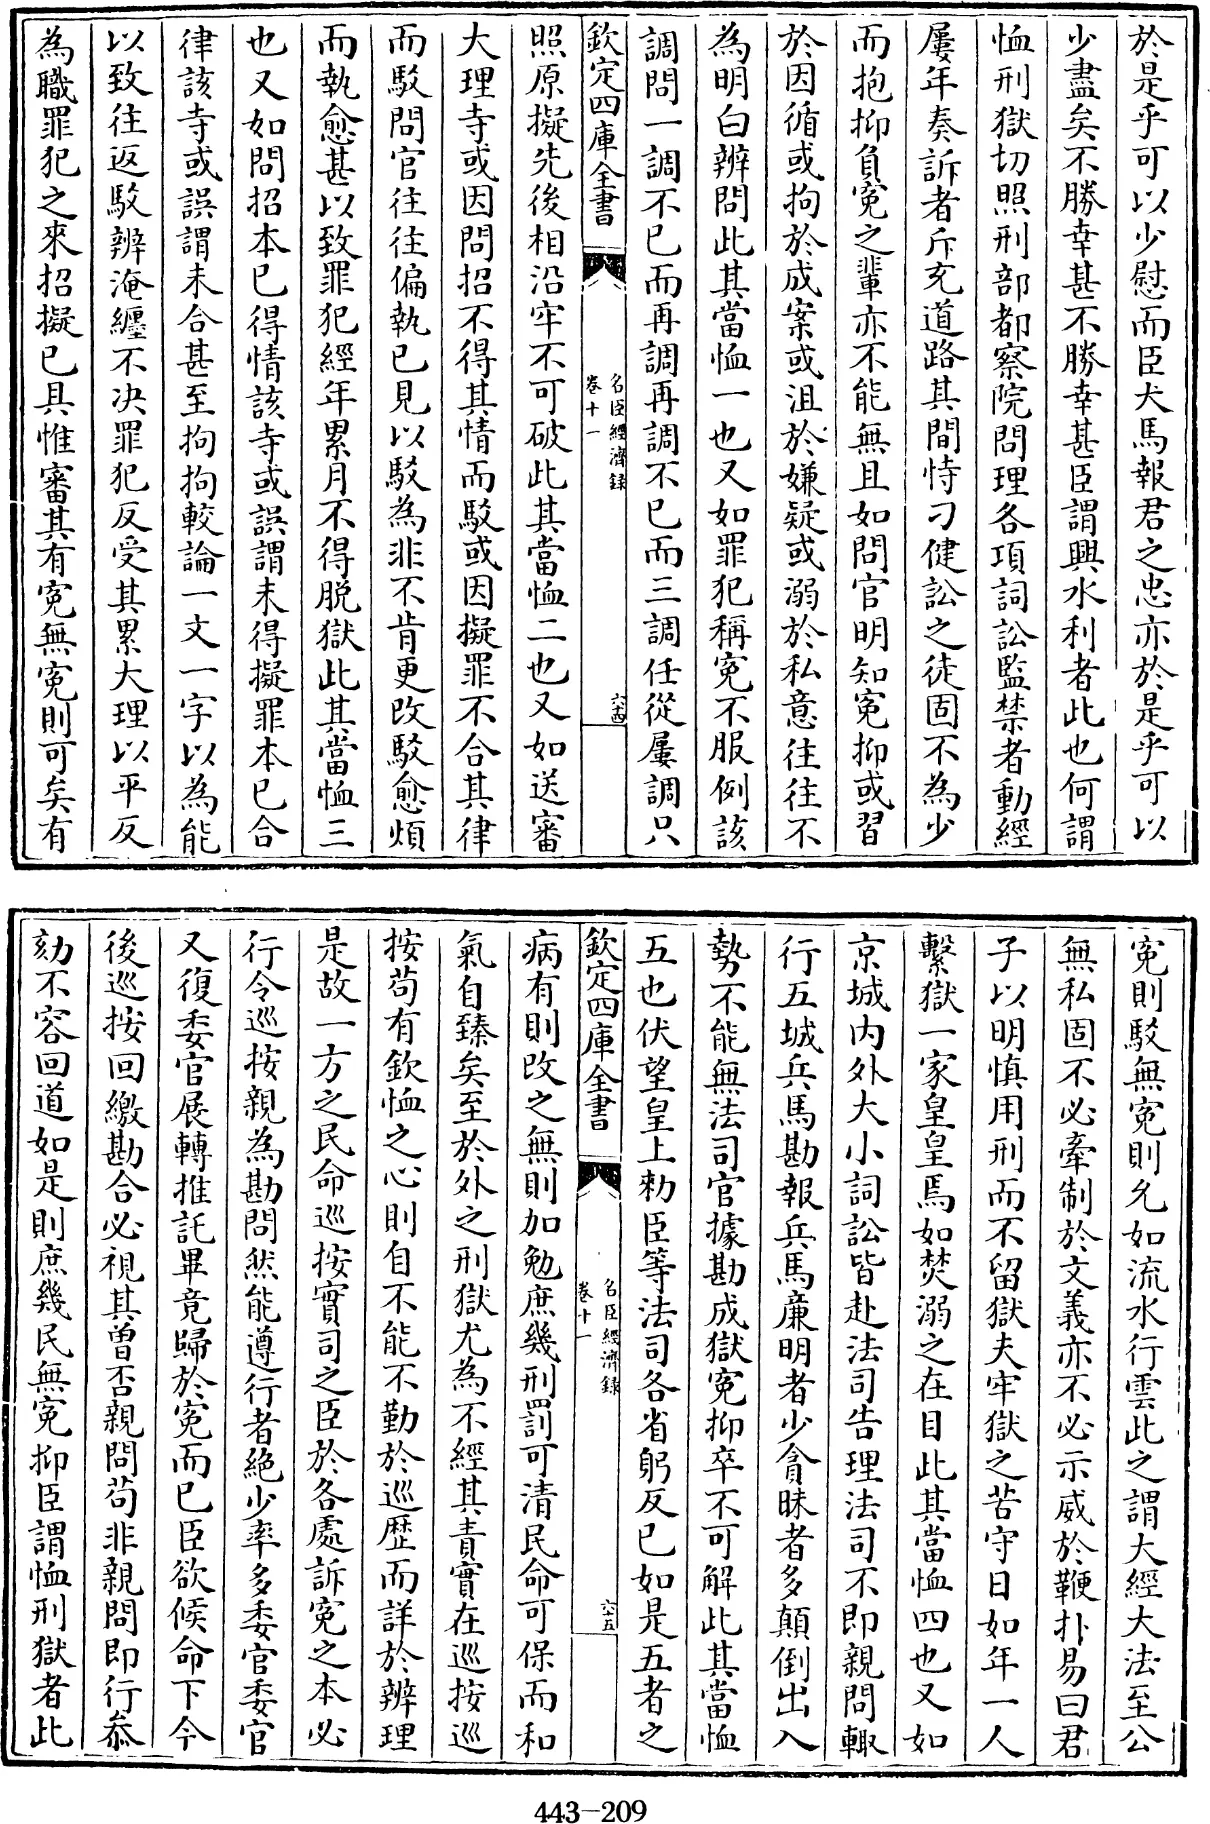 於是乎可以少慰而臣犬馬報君之忠亦於是乎可以
少盡矣不勝幸甚不勝幸甚臣謂興水利者此也何謂
恤刑獄切照刑部都察院問理各項詞訟監禁者動經
屢年奏訴者斥充道路其間恃刁健訟之徒固不為少
而抱抑負寃之輩亦不能無且如問官明知寃抑或習
於因循或拘於成案或沮於嫌疑或溺於私意往往不
為明白辨問此其當恤一也又如罪犯稱寃不服例該
調問一調不已而再調再調不已而三調任從屢調只
欽定四庫全書
名臣經濟録
卷十一
六十四
照原擬先後相沿牢不可破此其當恤二也又如送審
大理寺或因問招不得其情而駮或因擬罪不合其律
而駮問官往往偏執已見以駮為非不肯更改駮愈煩
而執愈甚以致罪犯經年累月不得脱獄此其當恤三
也又如問招本已得情該寺或誤謂未得擬罪本已合
律該寺或誤謂未合甚至拘拘較論一文一字以為能
以致往返駮辨淹纒不决罪犯反受其累大理以平反
為職罪犯之來招擬已具惟審其有寃無寃則可矣有
寃則駮無寃則允如流水行雲此之謂大經大法至公
無私固不必牽制於文義亦不必示威於鞭扑易曰君
子以明慎用刑而不留獄夫牢獄之苦守日如年一人
繫獄一家皇皇焉如焚溺之在目此其當恤四也又如
京城内外大小詞訟皆赴法司告理法司不即親問輙
行五城兵馬勘報兵馬廉明者少貪昧者多顛倒出入
勢不能無法司官據勘成獄寃抑卒不可解此其當恤
五也伏望皇上勑臣等法司各省躬反已如是五者之
欽定四庫全書
名臣經濟録
卷十一
六十五
病有則改之無則加勉庶幾刑罰可清民命可保而和
氣自臻矣至於外之刑獄尤為不經其責實在巡按巡
按苟有欽恤之心則自不能不勤於巡歴而詳於辨理
是故一方之民命巡按實司之臣於各處訴寃之本必
行令巡按親為勘問然能遵行者絶少率多委官委官
又復委官展轉推託畢竟歸於寃而已臣欲候命下今
後巡按回繳勘合必視其曽否親問苟非親問即行叅
劾不容回道如是則庶幾民無寃抑臣謂恤刑獄者此
443-209